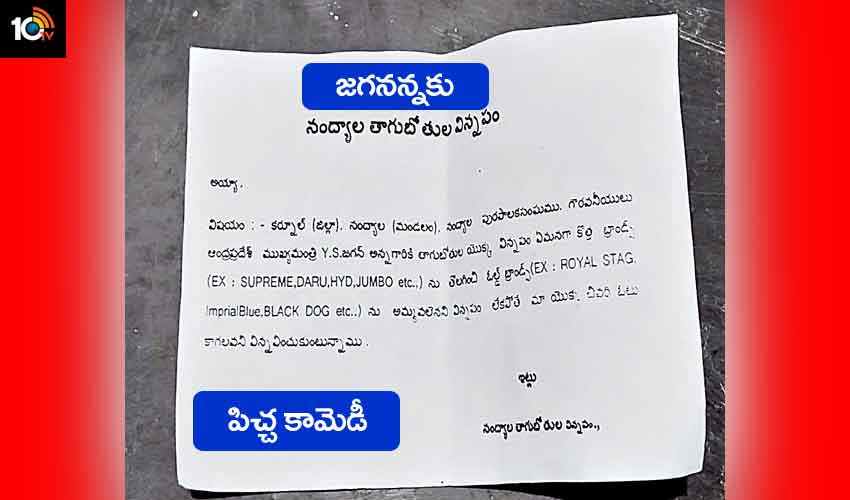 10TV
జగనన్నకు
నంద్యాల తాగుబోతుల విన్నపం
అయ్యా.
విషయం : - కర్నూల్ (జిల్లా), నంద్యాల (మండలం), నంద్యాల పురపాలకసంఘము. గౌరవనీయులు
ఆంద్రప్రదేశ్ ముఖ్యమంత్రి Y.S.జగన్ అన్నగారికి తాగుబోతుల యొక్క విన్నపం ఏమనగా కొత్త బ్రాండ్స్
(EX : SUPREME,DARU,HYD,JUMBO etc.,) ను తొలగించి ఓల్డ్ బ్రాండ్స్(EX : ROYAL STAG,
ImprialBlue,BLACK DOG etc..) ను అమ్మవలెనని విన్నపం లేకపోతే మా యొక్క చివరి ఓటు
కాగలవని విన్నవించుకుంటున్నాము.
ఇట్లు
పిచ్చ కామెడీ
నంద్యాల తాగుబోతుల విన్నపం.,